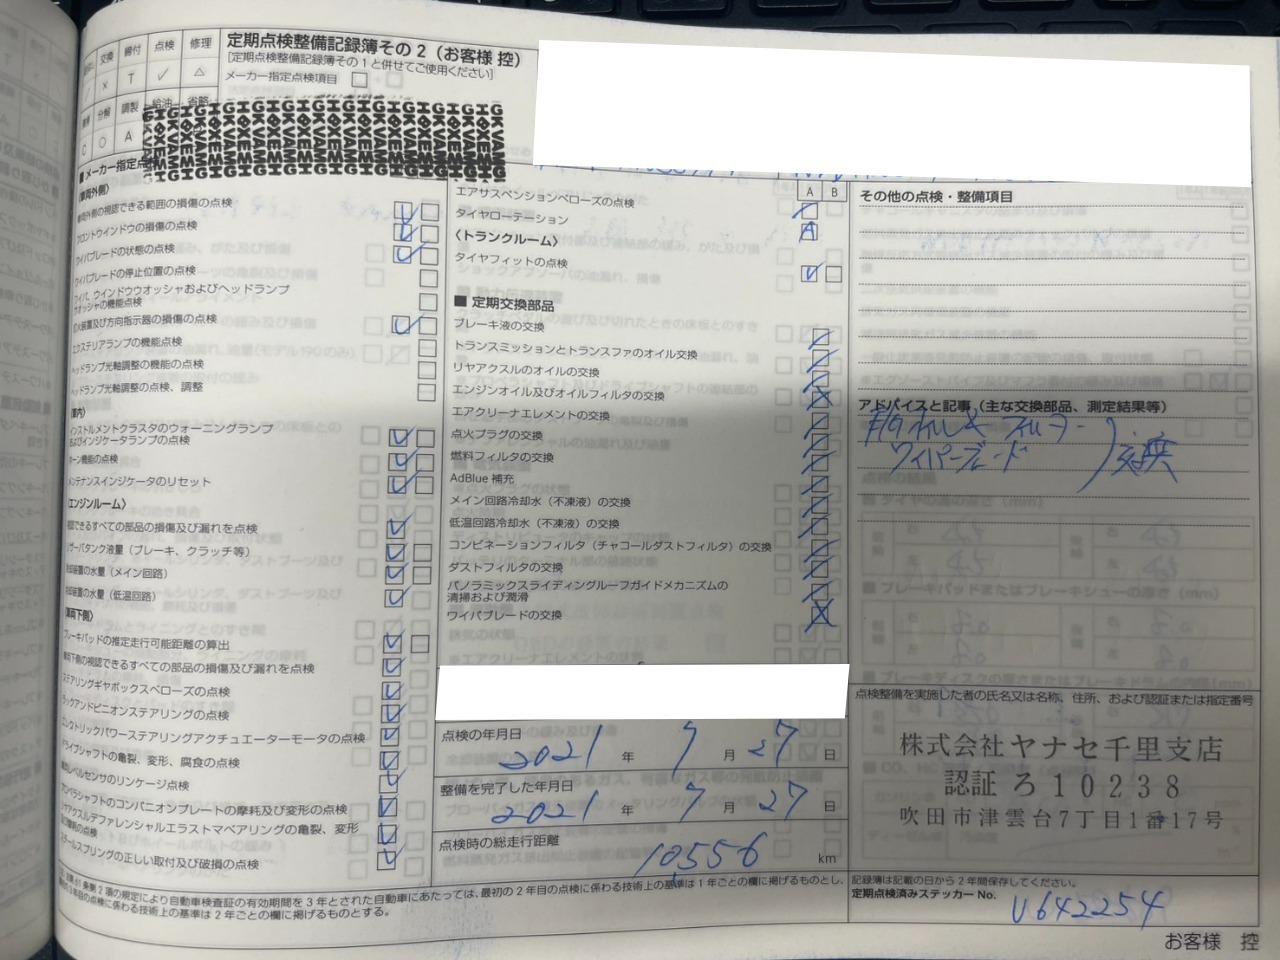 交換 締付 点検 修理
× T ✓ △
分解 調製 給油 省略
C ○ A
定期点検整備記録簿その2（お客様 控）
[定期点検整備記録簿その1と併せてご使用ください]
メーカー指定点検項目 □
■メーカー指定点
〈車両外側〉
車両外側の視認できる範囲の損傷の点検
フロントウインドウの損傷の点検
ワイパブレードの状態の点検
ワイパブレードの停止位置の点検
ワイパ、ウインドウウオッシャおよびヘッドランプ
ウオッシャの機能点検
灯火装置及び方向指示器の損傷の点検
エクステリアランプの機能点検
ヘッドランプ光軸調整の機能の点検
ヘッドランプ光軸調整の点検、調整
〈車内〉
インストルメントクラスタのウォーニングランプ
およびインジケータランプの点検
ホーン機能の点検
メンテナンスインジケータのリセット
〈エンジンルーム〉
視認できるすべての部品の損傷及び漏れを点検
リザーバタンク液量（ブレーキ、クラッチ等）
冷却装置の水量（メイン回路）
冷却装置の水量（低温回路）
〈車両下側〉
ブレーキパッドの推定走行可能距離の算出
車両下側の視認できるすべての部品の損傷及び漏れを点検
ステアリングギヤボックスベローズの点検
ラックアンドピニオンステアリングの点検
エレクトリックパワーステアリングアクチュエーターモータの点検
ドライブシャフトの亀裂、変形、腐食の点検
車高レベルセンサのリンケージ点検
プロペラシャフトのコンパニオンプレートの摩耗及び変形の点検
リヤアクスルデファレンシャルエラストマベアリングの亀裂、変形
及び摩耗の点検
スチールスプリングの正しい取付及び破損の点検
A B
エアサスペンションベローズの点検
タイヤローテーション
〈トランクルーム〉
タイヤフィットの点検
■ 定期交換部品
ブレーキ液の交換
トランスミッションとトランスファのオイル交換
リヤアクスルのオイルの交換
エンジンオイル及びオイルフィルタの交換
エアクリーナエレメントの交換
点火プラグの交換
燃料フィルタの交換
AdBlue 補充
メイン回路冷却水（不凍液）の交換
低温回路冷却水（不凍液）の交換
コンビネーションフィルタ（チャコールダストフィルタ）の交換
ダストフィルタの交換
パノラミックスライディングルーフガイドメカニズムの
清掃および潤滑
ワイパブレードの交換
点検の年月日
2021 年 7 月 27 日
整備を完了した年月日
2021 年 7 月 27 日
点検時の総走行距離
10556 km
その他の点検・整備項目
アドバイスと記事（主な交換部品、測定結果等）
ワイパーブレード 交換
点検整備を実施した者の氏名又は名称、住所、および認証または指定番号
株式会社ヤナセ千里支店
認証 ろ10238
吹田市津雲台7丁目1番17号
記録簿は記載の日から2年間保存してください。
定期点検済みステッカーNo.
U642254
第61条第2項の規定により自動車検査証の有効期間を3年とされた自動車にあたっては、最初の2年目の点検に係わる技術上の基準は1年ごとの欄に掲げるものとし、
の点検に係わる技術上の基準は2年ごとの欄に掲げるものとする。
お客様 控